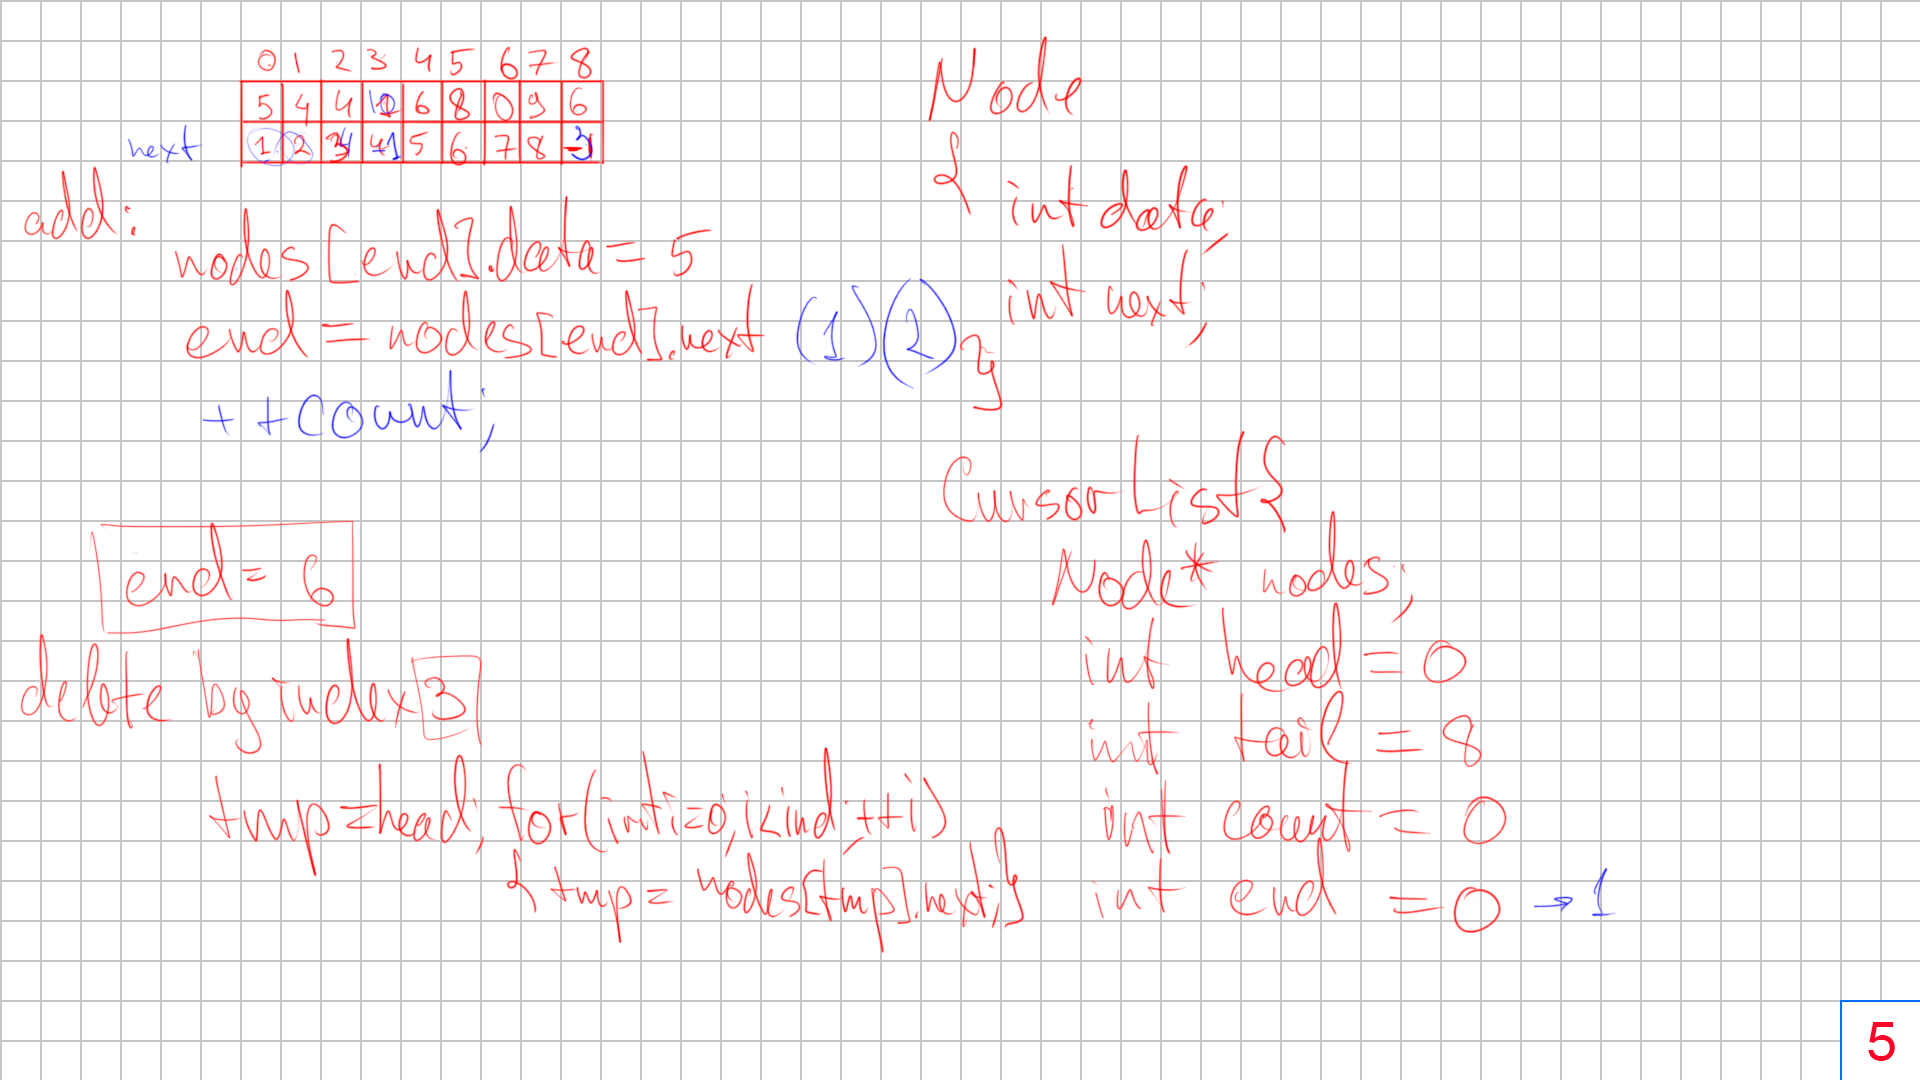 0 1 2 3 4 5 6 7 8
5 4 4 6 8 0 9 6
next 1 2 5 6 7 8
add:
nodes[end].data = 5
end = nodes[end].next (1)(2)
++count;
end = 6
delete by index 3
tmp=head; for(int i=0; i<ind; ++i)
{ tmp = nodes[tmp].next;}
Node
{ int data;
int next;
}
CursorList{
Node* nodes;
int head = 0
int tail = 8
int count = 0
int end = 0 → 1
5